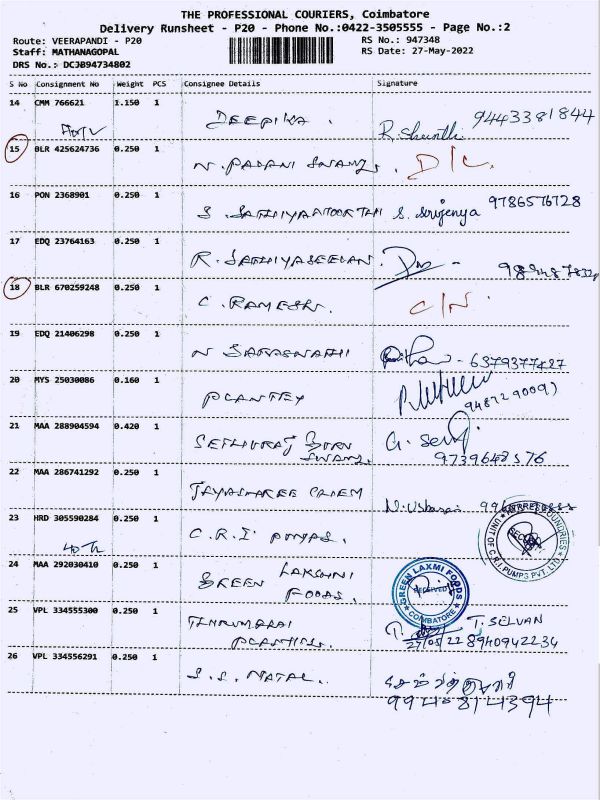 THE PROFESSIONAL COURIERS, Coimbatore
Delivery Runsheet - P20 - Phone No.:0422-3505555 - Page No.:2
Route: VEERAPANDI - P20 RS No.: 947348
Staff: MATHANAGOPAL RS Date: 27-May-2022
DRS No.: DCJB94734802
S No Consignment No Weight PCS Consignee Details Signature
14 CMM 766621 1.150 1 DEEPIKA. 9443381844
15 BLR 425624736 0.250 1 N. PALANI SWAMY. D/C.
16 PON 2368901 0.250 1 S. S. Srijenya 9786576728
17 EDQ 23764163 0.250 1 R. SATHIYASEELAN.
18 BLR 670259248 0.250 1 C. RAMESH. C/N.
19 EDQ 21406298 0.250 1 N - 6379377427
20 MYS 25030086 0.160 1
21 MAA 288904594 0.420 1 SWAMY. G. 9739648576
22 MAA 286741292 0.250 1 JAYASHREE CHEM
23 HRD 305590284 0.250 1 C.R.I PUMPS.
UNIT OF C.R.I. PUMPS PVT. LTD
24 MAA 292030410 0.250 1 GREEN LAKSHMI FOODS.
GREEN LAXMI FOODS
RECEIVED
COIMBATORE
25 VPL 334555300 0.250 1 T. SELVAN
27/05/22 8940942234
26 VPL 334556291 0.250 1 S.S. NATAL..
9940814394